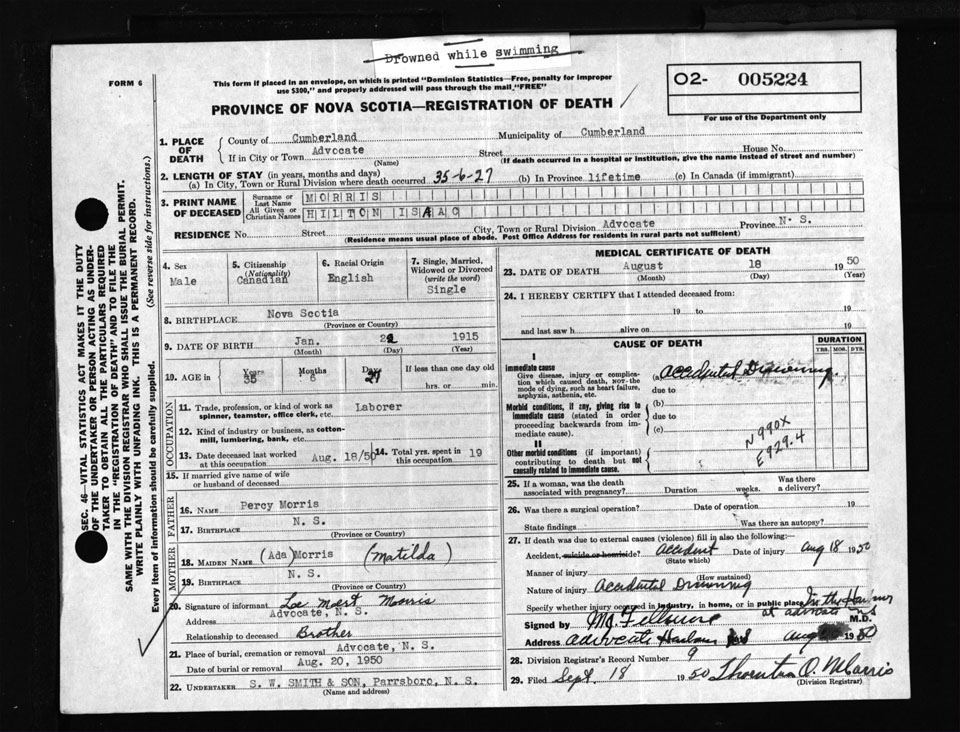 Drowned while swimming
FORM 6
This form if placed in an envelope, on which is printed "Dominion Statistics—Free, penalty for improper
use $300," and properly addressed will pass through the mail "FREE"
PROVINCE OF NOVA SCOTIA—REGISTRATION OF DEATH
O2- 005224
For use of the Department only
SEC. 46—VITAL STATISTICS ACT MAKES IT THE DUTY
OF THE UNDERTAKER OR PERSON ACTING AS UNDER-
TAKER TO OBTAIN ALL THE PARTICULARS REQUIRED
IN THE "REGISTRATION OF DEATH" AND TO FILE THE
SAME WITH THE DIVISION REGISTRAR WHO SHALL ISSUE THE BURIAL PERMIT.
WRITE PLAINLY WITH UNFADING INK. THIS IS A PERMANENT RECORD.
Every item of information should be carefully supplied. (See reverse side for instructions.)
1. PLACE OF DEATH
County of Cumberland Municipality of Cumberland
If in City or Town Advocate Street House No.
(Name) (If death occurred in a hospital or institution, give the name instead of street and number)
2. LENGTH OF STAY (in years, months and days)
(a) In City, Town or Rural Division where death occurred 35-6-27 (b) In Province lifetime (c) In Canada (if immigrant)
3. PRINT NAME OF DECEASED
Surname or Last Name MORRIS
All Given or Christian Names HILTON ISAAC
RESIDENCE No. Street City, Town or Rural Division Advocate Province N. S.
(Residence means usual place of abode. Post Office Address for residents in rural parts not sufficient)
4. Sex Male
5. Citizenship (Nationality) Canadian
6. Racial Origin English
7. Single, Married, Widowed or Divorced (write the word) Single
8. BIRTHPLACE Nova Scotia
(Province or Country)
9. DATE OF BIRTH Jan. 1915
(Month) (Day) (Year)
10. AGE in Years 35 Months 6 Days 27 If less than one day old
hrs. or min.
OCCUPATION
11. Trade, profession, or kind of work as Laborer
spinner, teamster, office clerk, etc.
12. Kind of industry or business, as cotton-
mill, lumbering, bank, etc.
13. Date deceased last worked at this occupation Aug. 18/50 14. Total yrs. spent in this occupation 19
15. If married give name of wife
or husband of deceased
FATHER
16. NAME Percy Morris
17. BIRTHPLACE N. S.
(Province or Country)
MOTHER
18. MAIDEN NAME (Ada) Morris (Matilda)
19. BIRTHPLACE N. S.
(Province or Country)
20. Signature of informant Morris
Address Advocate, N. S.
Relationship to deceased Brother
21. Place of burial, cremation or removal Advocate, N. S.
Date of burial or removal Aug. 20, 1950
22. UNDERTAKER S. W. SMITH & SON, Parrsboro, N. S.
(Name and address)
MEDICAL CERTIFICATE OF DEATH
23. DATE OF DEATH August 18 1950
(Month) (Day) (Year)
24. I HEREBY CERTIFY that I attended deceased from:
19 to 19
and last saw h alive on 19
CAUSE OF DEATH
DURATION
YRS. MOS. DYS.
I
Immediate cause
Give disease, injury or complica-
tion which caused death, NOT the
mode of dying, such as heart failure,
asphyxia, asthenia, etc.
(a) Accidental Drowning.
due to
Morbid conditions, if any, giving rise to
immediate cause (stated in order
proceeding backwards from im-
mediate cause).
(b)
due to
(c)
II
Other morbid conditions (if important)
contributing to death but not
causally related to immediate cause.
N990X
E929.4
25. If a woman, was the death
associated with pregnancy? Duration weeks. Was there a delivery?
26. Was there a surgical operation? Date of operation 19
State findings Was there an autopsy?
27. If death was due to external causes (violence) fill in also the following:—
Accident, suicide or homicide? Accident Date of injury Aug 18 1950
(State which)
Manner of injury
(How sustained)
Nature of injury Accidental Drowning
Specify whether injury occurred in industry, in home, or in public place In the Harbour
at advocate NS
Signed by M.D.
Address advocate Harbour NS Aug 1950
28. Division Registrar's Record Number 9
29. Filed Sept. 18 1950 Thornton O. Morris
(Division Registrar)